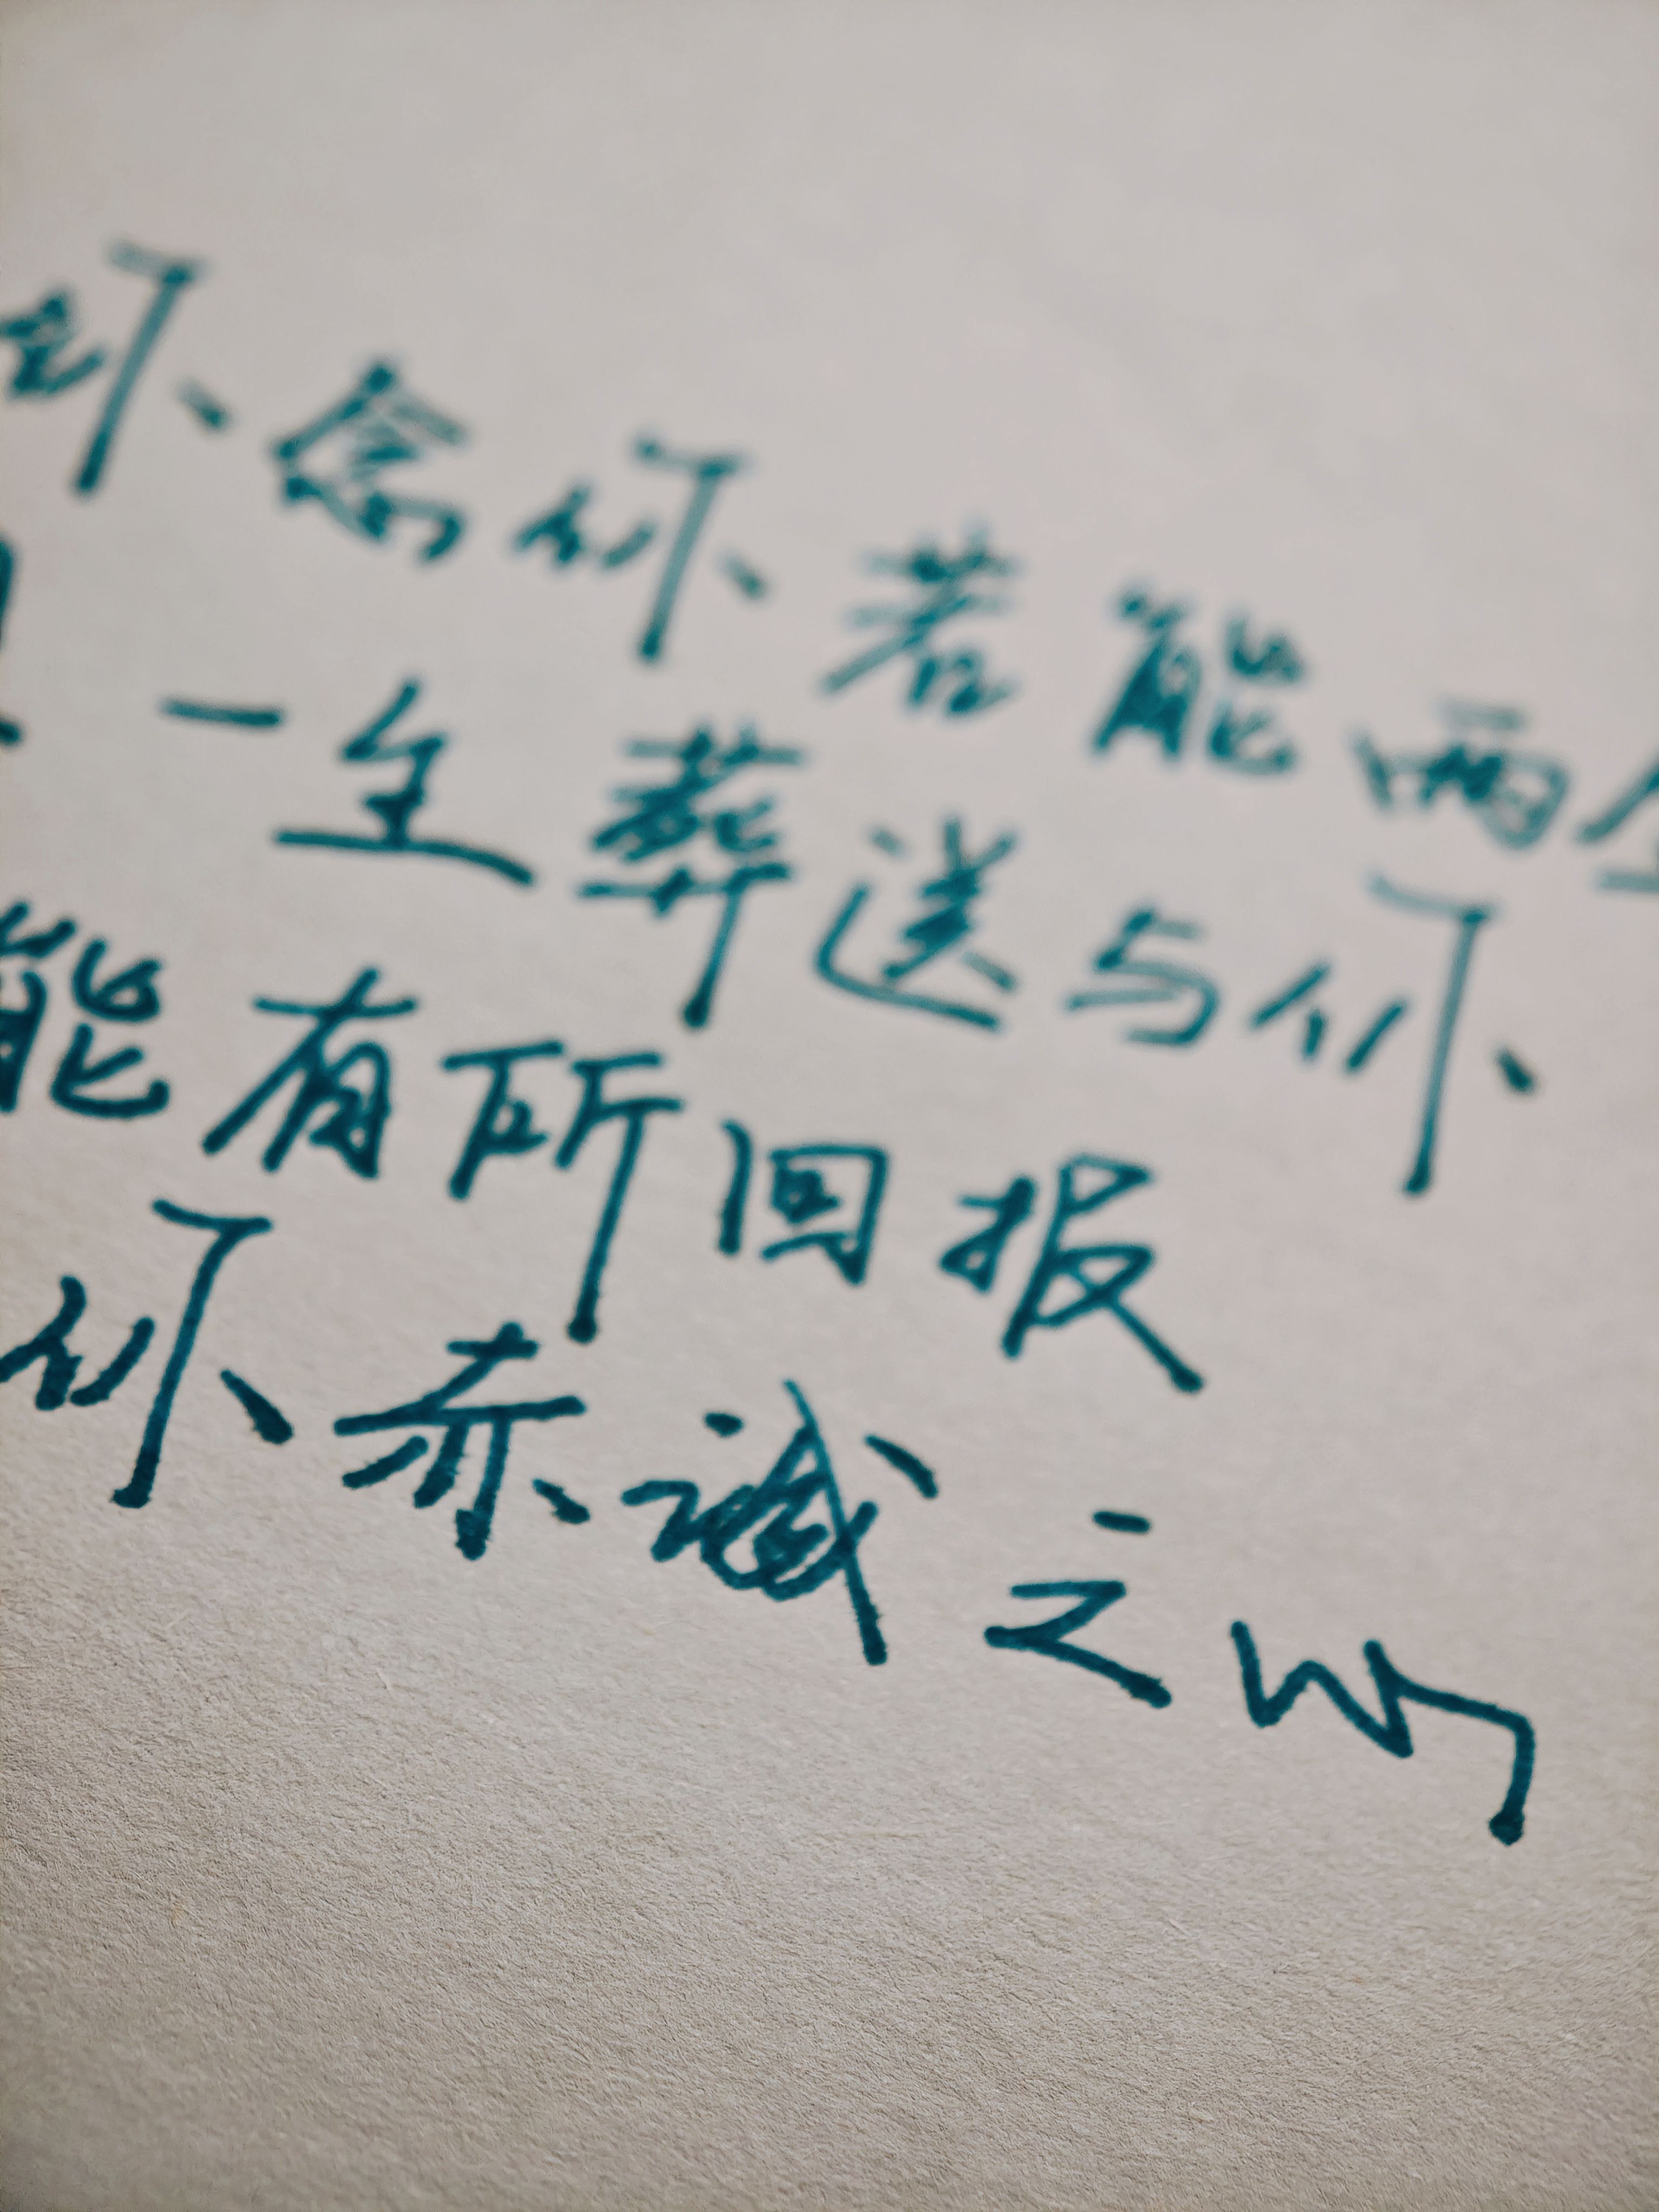 你、念你、若能两全
一生葬送与你、
能有所回报
你、赤诚之心